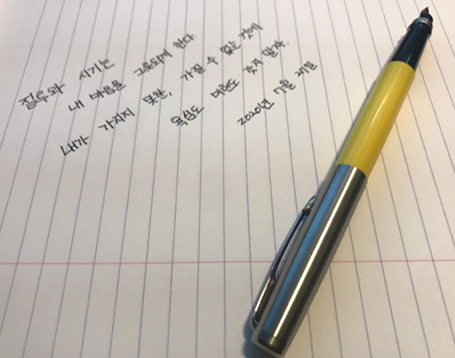 질투와 시기는
내 마음을 그릇되게 한다.
내가 가지지 못한, 가질 수 없는 것에
욕심도 미련도 갖지 말자.
2020년 7월 21일